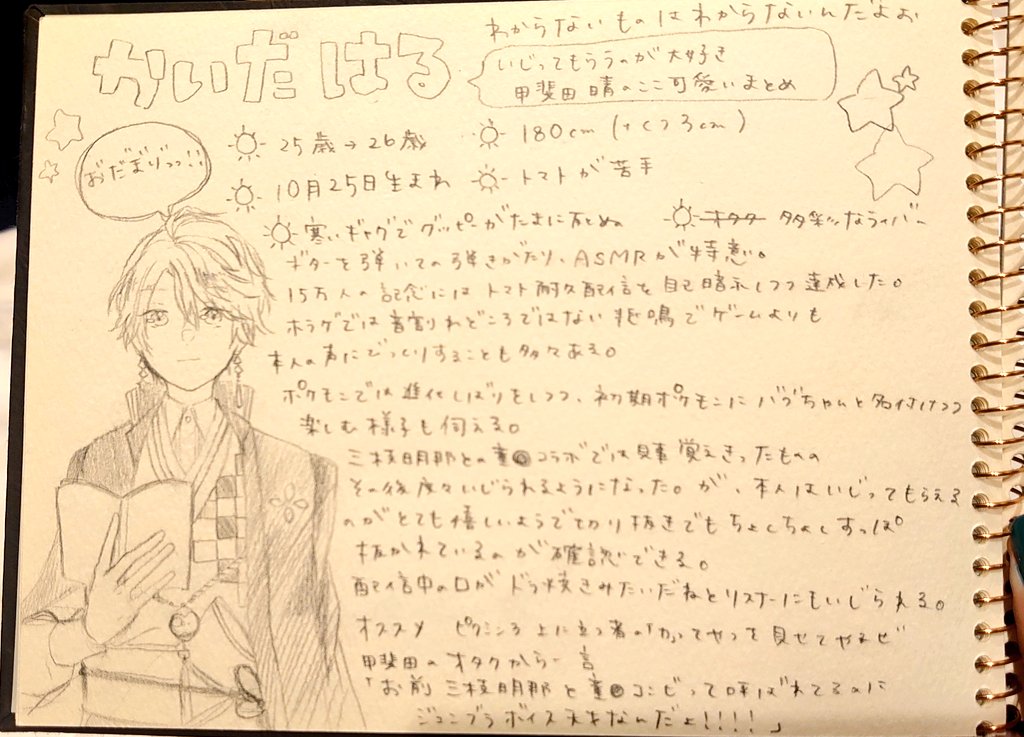 わからないものはわからないんだよお
かいだ はる
いじってもらうのが大好き
甲斐田 晴のここ可愛いまとめ
おだまりっっ!!
25歳→26歳
180cm (+くつ3cm)
10月25日生まれ
トマトが苦手
寒いギャグでグッピーがたまに万とぬ
オタク 多彩なライバー
ギターを弾いての弾きがたり、ASMRが特意。
15万人の記念にはトマト耐久配信を自己暗示しつつ達成した。
ホラゲでは音割れどころではない悲鳴でゲームよりも
本人の声にびっくりすることも多々ある。
ポケモンでは進化しばりをしつつ、初期ポケモンにバブちゃんと名付けつつ
楽しむ様子も伺える。
三枝明那との童●コラボでは見事覚えきったものの
その後度々いじられるようになった。が、本人はいじってもらえる
のがとても嬉しいようで切り抜きでもちょくちょくすっぱ
抜かれているのが確認できる。
配信中の口がドラ焼きみたいだねとリスナーにもいじられる。
オススメ ピクミン3 上に立つ者の「かってやつを見せてやるぜ
甲斐田のオタクから一言
「お前 三枝明那と童●コンビって呼ばれてるのに
ジューンブラボイス天才なんだよ!!!!」